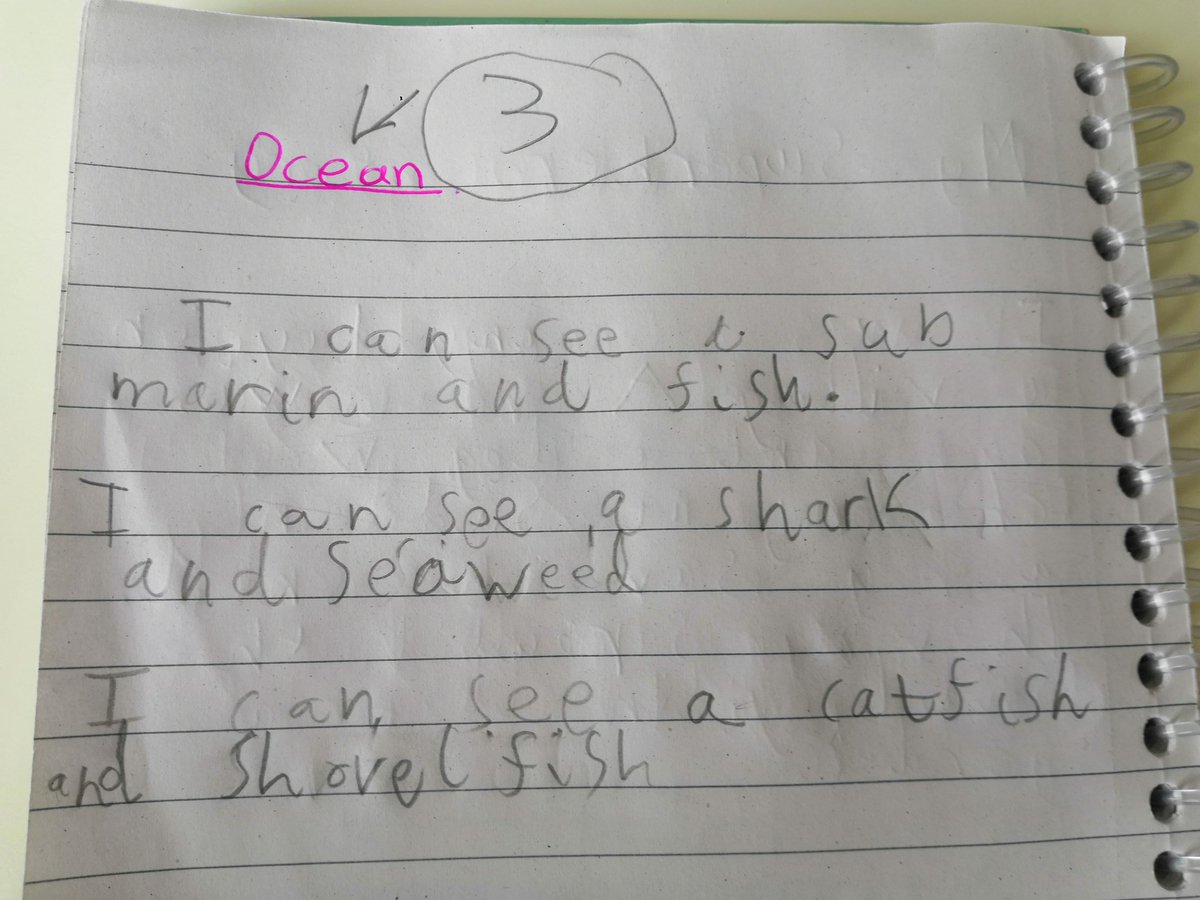 3
Ocean
I can see a sub
marin and fish.
I can see a shark
and seaweed
I can see a catfish
and shovel fish